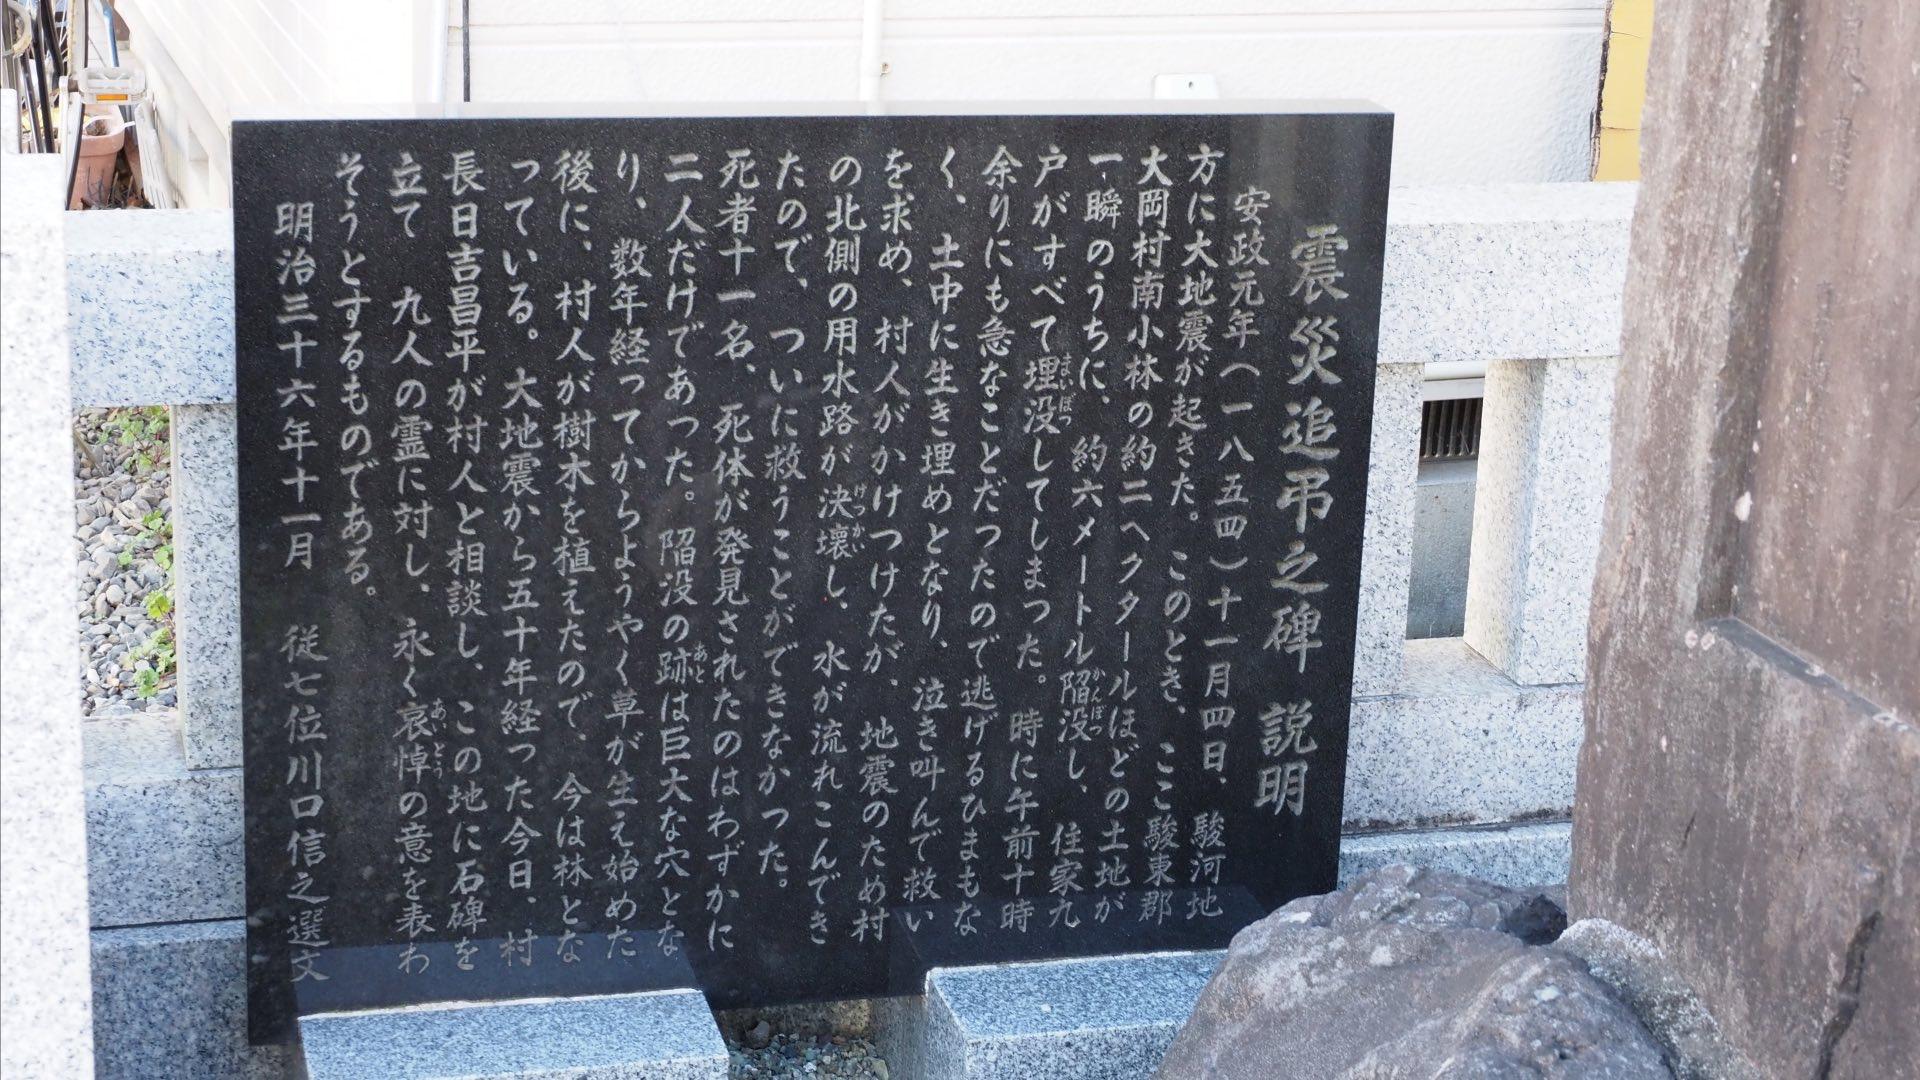 震災追弔之碑 説明
安政元年(一八五四)十一月四日、駿河地
方に大地震が起きた。このとき、ここ駿東郡
大岡村南小林の約二ヘクタールほどの土地が
一瞬のうちに、約六メートル陥没し、住家九
戸がすべて埋没してしまつた。時に午前十時
余りにも急なことだつたので逃げるひまもな
く、土中に生き埋めとなり、泣き叫んで救い
を求め、村人がかけつけたが、地震のため村
の北側の用水路が決壊し、水が流れこんでき
たので、ついに救うことができなかつた。
死者十一名、死体が発見されたのはわずかに
二人だけであった。陥没の跡は巨大な穴とな
り、数年経ってからようやく草が生え始めた
後に、村人が樹木を植えたので、今は林とな
っている。大地震から五十年経つた今日、村
長日吉昌平が村人と相談し、この地に石碑を
立て 九人の霊に対し、永く哀悼の意を表わ
そうとするものである。
明治三十六年十一月 従七位川口信之選文